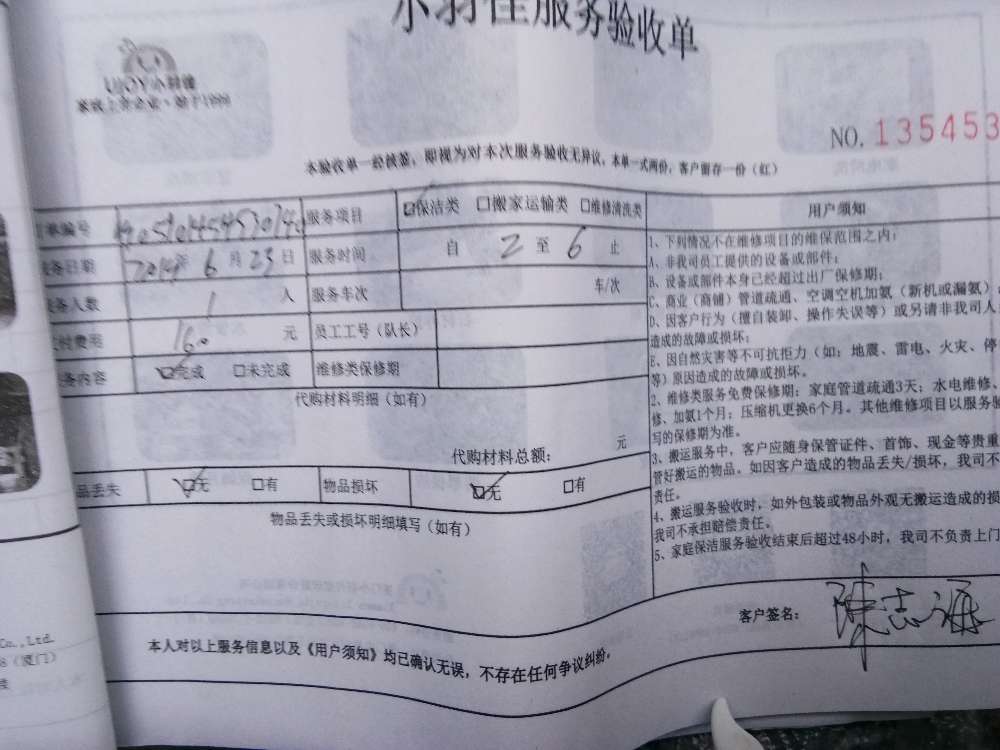 小羽佳服务验收单
UJOY小羽佳
家政上市企业·始于1999
NO. 135453
本验收单一经候签，即视为对本次服务验收无异议，本单一式两份，客户留存一份（红）
单编号 服务项目 ☑保洁类 □搬家运输类 □维修清洗类 用户须知
务日期 2019年6月23日 服务时间 自 2 至 6 止
务人数 1 人 服务车次 车/次
付费用 160 元 员工工号（队长）
务内容 ☑完成 □未完成 维修类保修期
代购材料明细（如有）
代购材料总额： 元
品丢失 ☑无 □有 物品损坏 ☑无 □有
物品丢失或损坏明细填写（如有）
1、下列情况不在维修项目的维保范围之内：
A、非我司员工提供的设备或部件；
B、设备或部件本身已经超过出厂保修期；
C、商业（商铺）管道疏通、空调空机加氨（新机或漏氨）
D、因客户行为（擅自装卸、操作失误等）或另请非我司人
造成的故障或损坏；
E、因自然灾害等不可抗拒力（如：地震、雷电、火灾、停
等）原因造成的故障或损坏。
2、维修类服务免费保修期：家庭管道疏通3天；水电维修、
修、加氨1个月；压缩机更换6个月。其他维修项目以服务验
写的保修期为准。
3、搬运服务中，客户应随身保管证件、首饰、现金等贵重
管好搬运的物品。如因客户造成的物品丢失/损坏，我司不
责任。
4、搬运服务验收时，如外包装或物品外观无搬运造成的损
我司不承担赔偿责任。
5、家庭保洁服务验收结束后超过48小时，我司不负责上门
客户签名： 陈志海
本人对以上服务信息以及《用户须知》均已确认无误，不存在任何争议纠纷。
Co.,Ltd.
8（厦门）